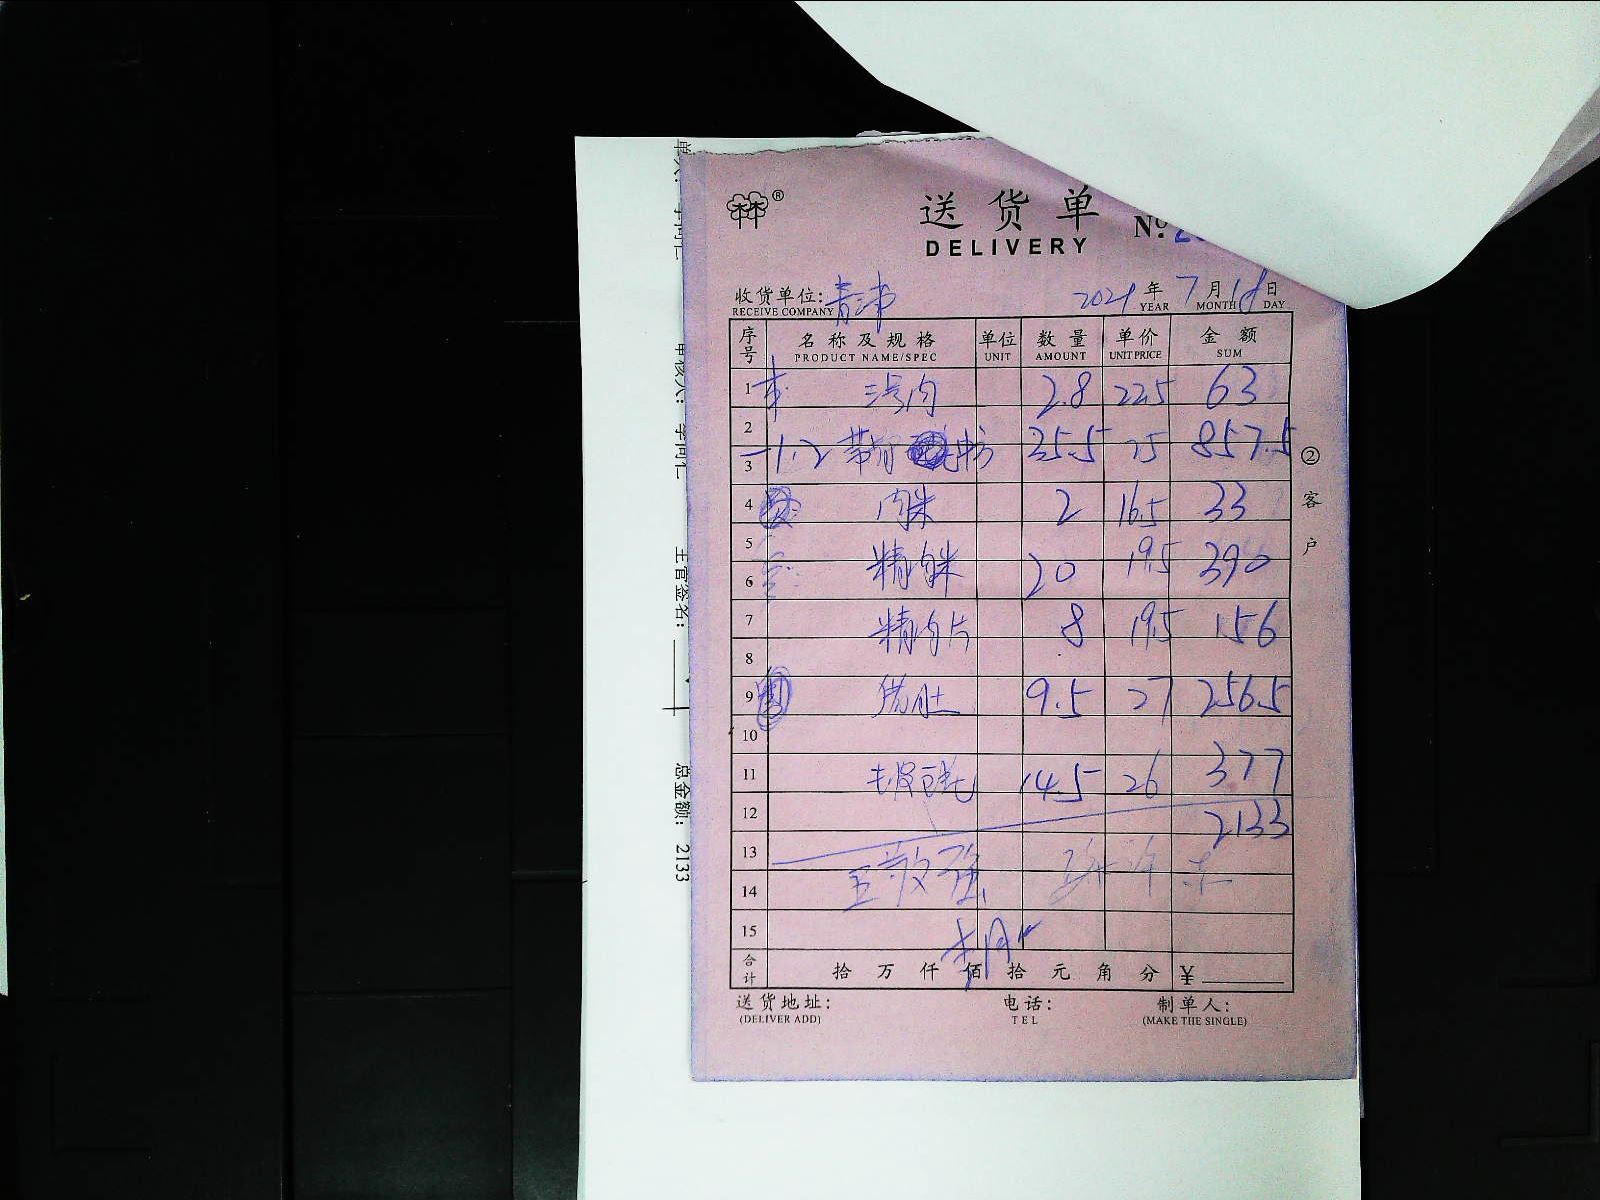 送货单
DELIVERY
№: 2
收货单位:
RECEIVE COMPANY
2021 年 7 月 18 日
YEAR MONTH DAY
序号 名称及规格 单位 数量 单价 金额
PRODUCT NAME/SPEC UNIT AMOUNT UNIT PRICE SUM
1 三号肉 2.8 22.5 63
2
3 1.2 带 35.5 25 857.5
4 肉米 2 16.5 33
5
6 精肉米 20 19.5 390
7 精肉片 8 19.5 156
8
9 肚 9.5 27 256.5
10
11 14.5 26 377
12 2133
13
14
15
合计 拾 万 仟 佰 拾 元 角 分 ¥
送货地址:
(DELIVER ADD)
电话:
TEL
制单人:
(MAKE THE SINGLE)
②客户
林®
审核人: 李同仁
主官签名:
总金额: 2133